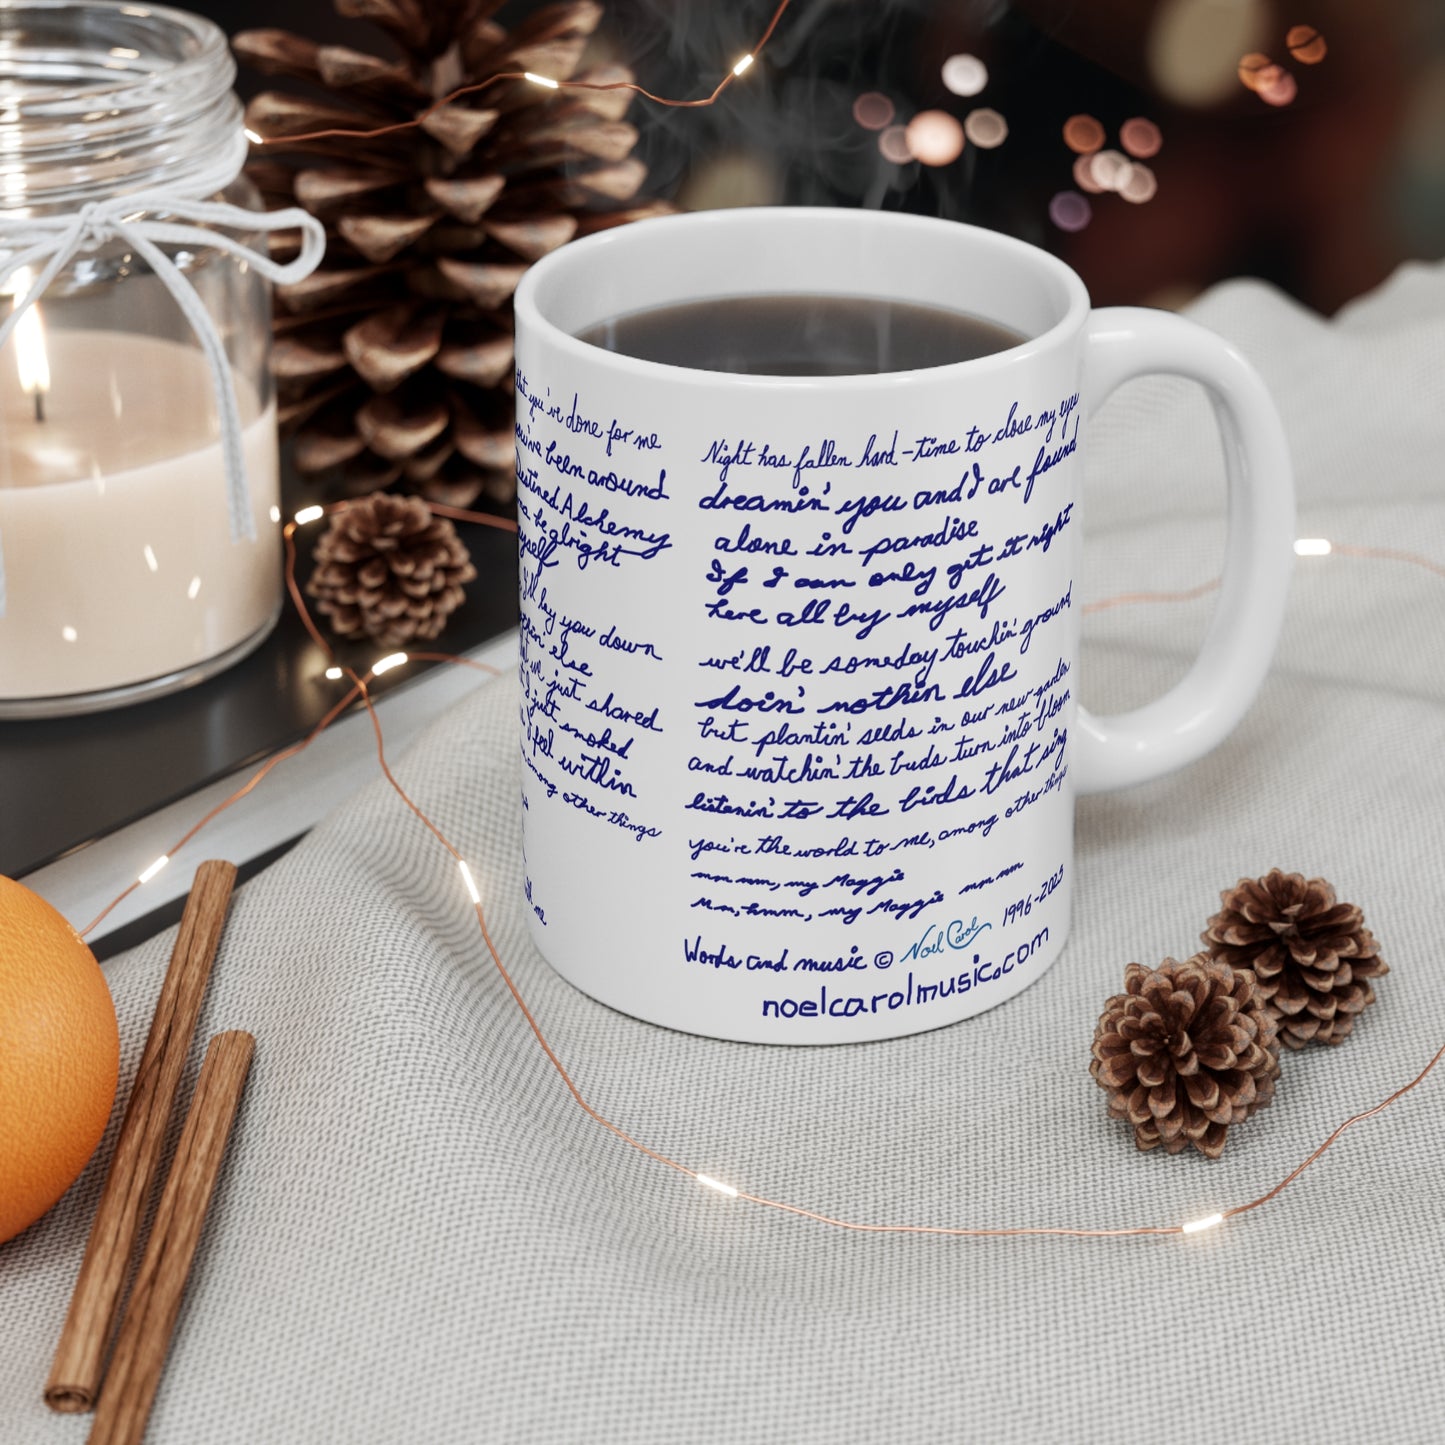 that you've done for me
you've been around
Destined Alchemy
be alright
myself
I'll lay you down
nothin' else
we just shared
I just smoked
I feel within
among other things
me
Night has fallen hard - time to close my eyes
dreamin' you and I are found
alone in paradise
If I can only get it right
here all by myself
we'll be someday touchin' ground
doin' nothin else
but plantin' seeds in our new garden
and watchin' the buds turn into bloom
listenin' to the birds that sing
you're the world to me, among other things
mm mm, my Maggie
Mm, hmm, my Maggie mm mm
Words and music © Noel Carol 1996-2025
noelcarolmusic.com